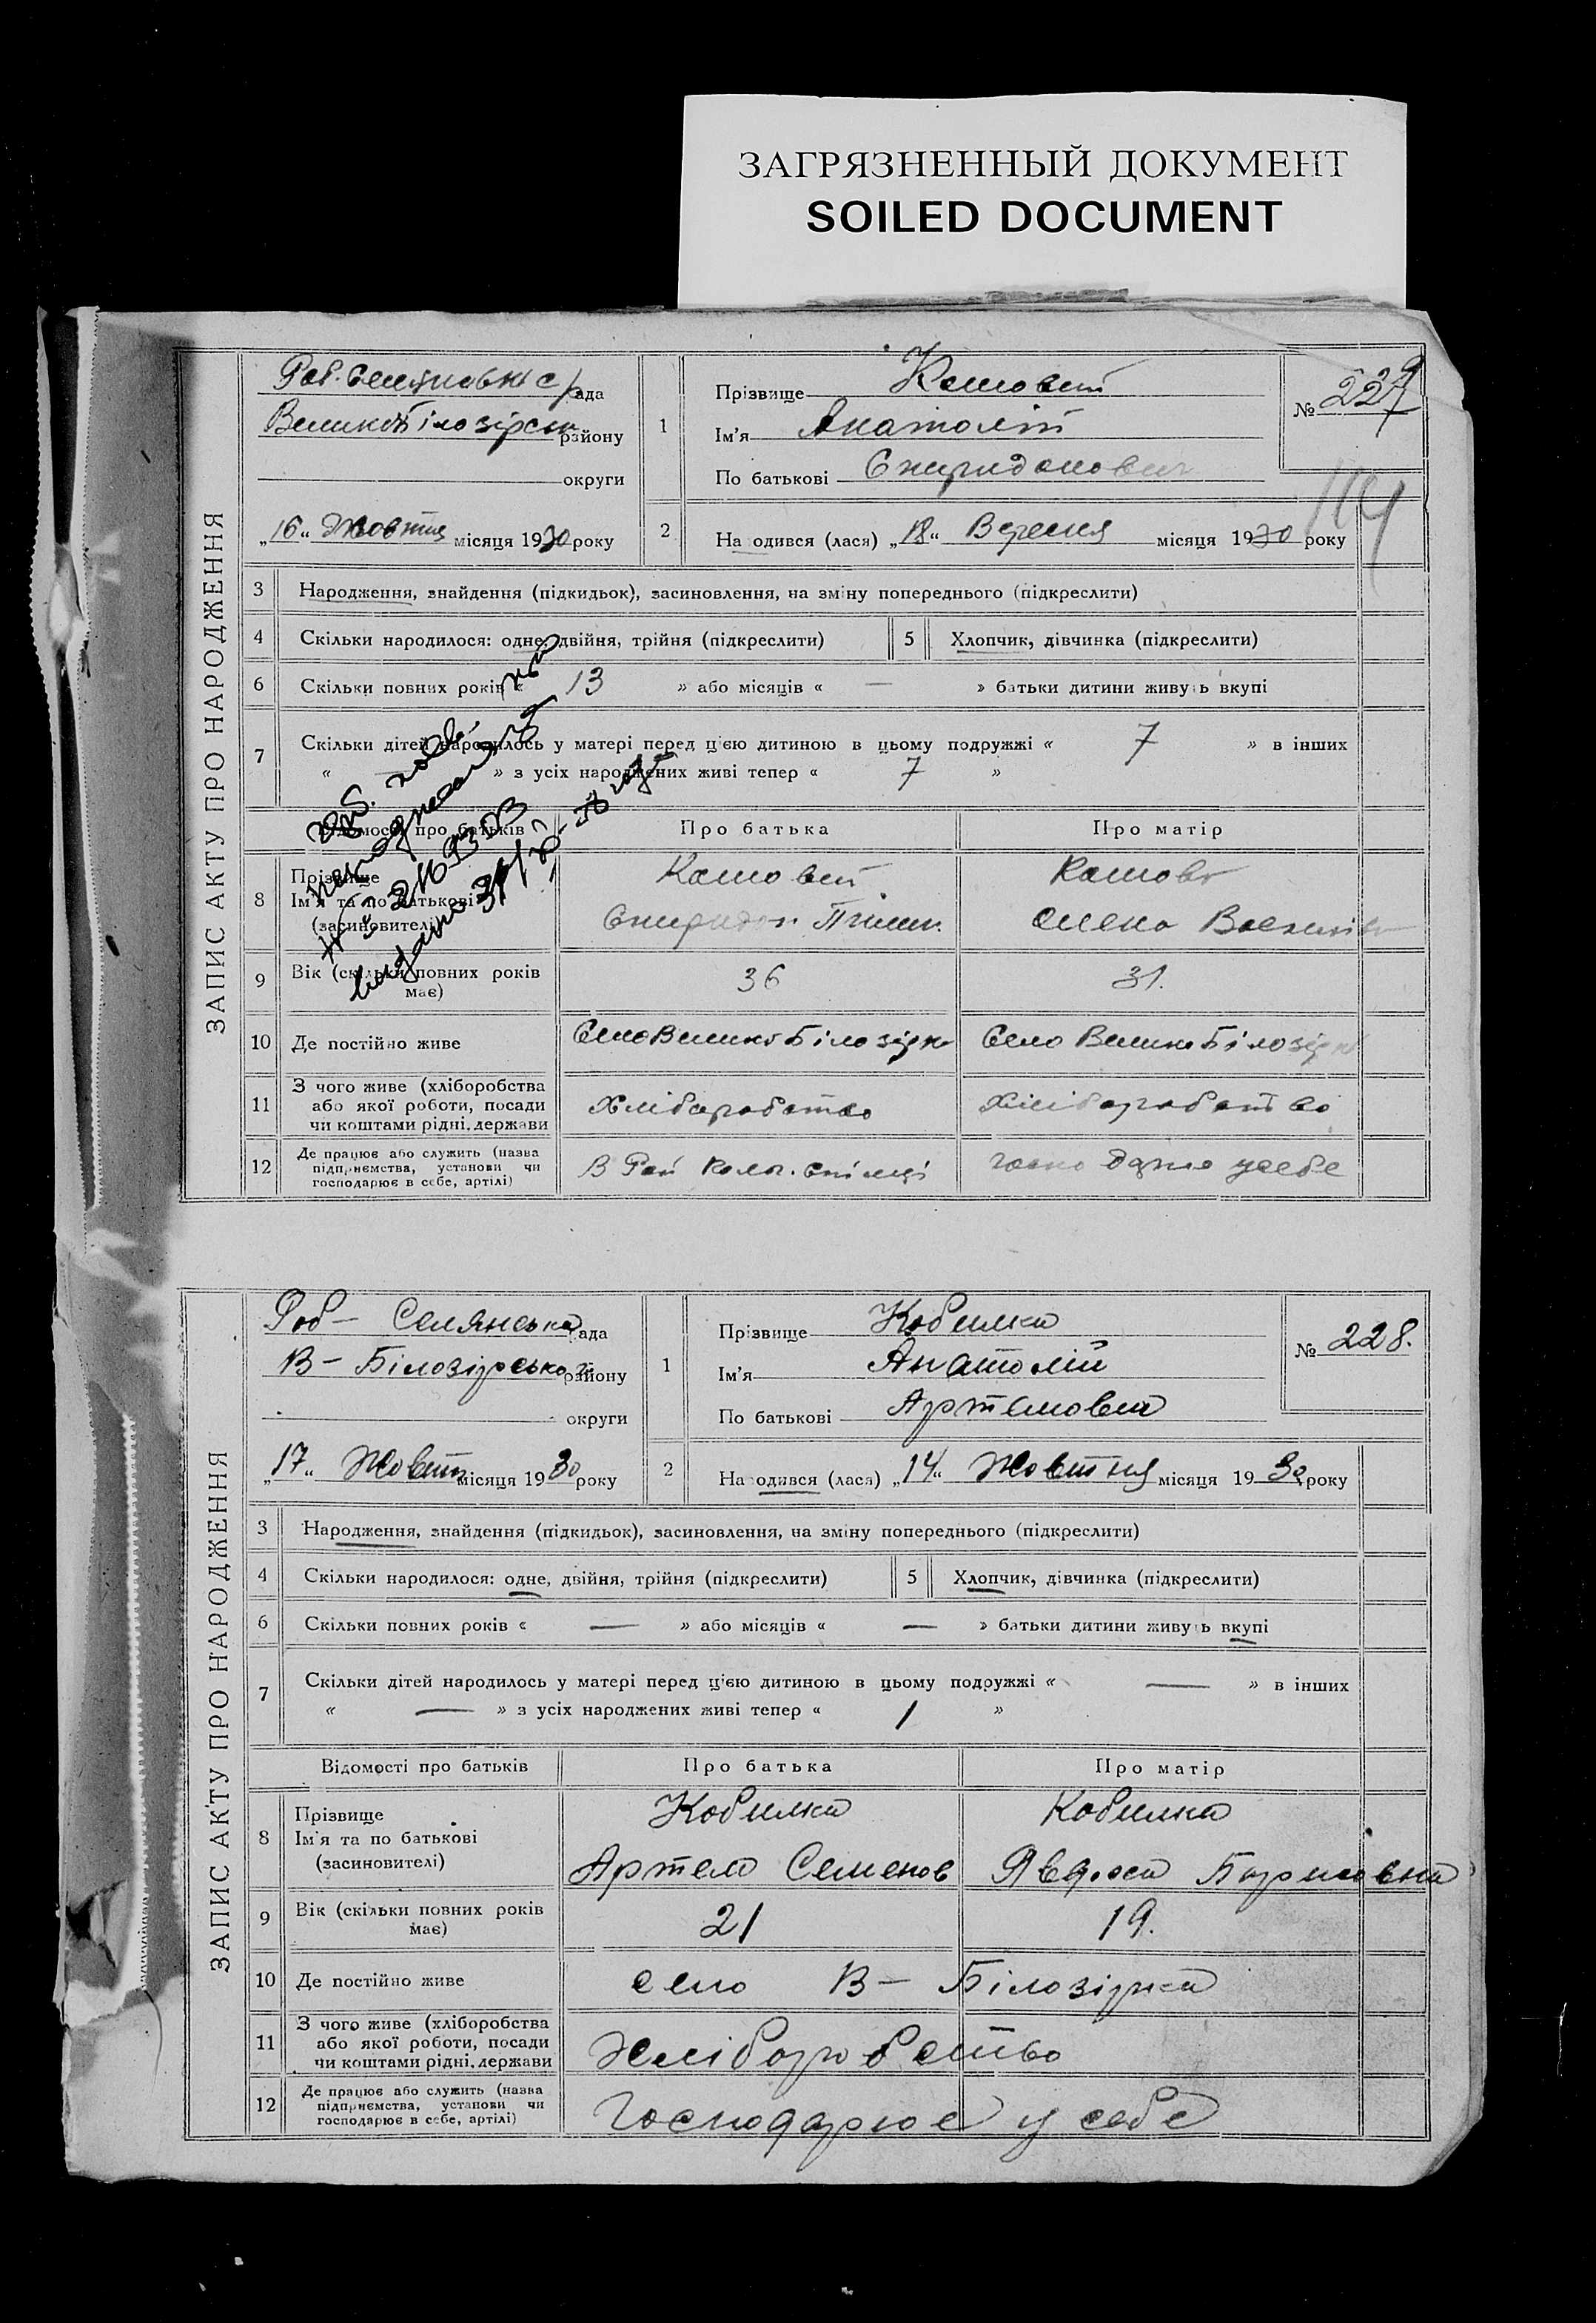 ЗАГРЯЗНЕННЫЙ ДОКУМЕНТ
SOILED DOCUMENT
ЗАПИС АКТУ ПРО НАРОДЖЕННЯ
рада
району
округи
„16“ Жовтня місяця 1930 року
1
Прізвище
Ім'я Анатолій
По батькові Спиридонович
№ 227
2
На одився (лася) „18“ Вересня місяця 1930 року
3 Народження, знайдення (підкидьок), засиновлення, на зміну попереднього (підкреслити)
4 Скільки народилося: одне, двійня, трійня (підкреслити)
5 Хлопчик, дівчинка (підкреслити)
6 Скільки повних років « 13 » або місяців « — » батьки дитини живуть вкупі
7 Скільки дітей народилось у матері перед ц'єю дитиною в цьому подружжі « 7 » в інших
« » з усіх народжених живі тепер « 7 »
Відомості про батьків
Про батька
Про матір
8 Прізвище
Ім'я та по батькові
(засиновителі)
9 Вік (скільки повних років має)
36
31.
10 Де постійно живе
Село Велико Білозірка
Село Велико Білозірка
11 З чого живе (хліборобства
або якої роботи, посади
чи коштами рідні, держави
Хліборобство
Хліборобство
12 Де працює або служить (назва
підприємства, установи чи
господарює в себе, артілі)
ЗАПИС АКТУ ПРО НАРОДЖЕННЯ
Роб — Селянська рада
В — Білозірського району
округи
„17“ Жовтн місяця 1930 року
1
Прізвище Кобилка
Ім'я Анатолій
По батькові Артемович
№ 228.
2
На одився (лася) „14“ Жовтня місяця 1930 року
3 Народження, знайдення (підкидьок), засиновлення, на зміну попереднього (підкреслити)
4 Скільки народилося: одне, двійня, трійня (підкреслити)
5 Хлопчик, дівчинка (підкреслити)
6 Скільки повних років « — » або місяців « — » батьки дитини живуть вкупі
7 Скільки дітей народилось у матері перед ц'єю дитиною в цьому подружжі « — » в інших
« — » з усіх народжених живі тепер « 1 »
Відомості про батьків
Про батька
Про матір
8 Прізвище
Ім'я та по батькові
(засиновителі)
Кобилка
Артем Семенов
Кобилка
9 Вік (скільки повних років має)
21
19.
10 Де постійно живе
село В — Білозірка
11 З чого живе (хліборобства
або якої роботи, посади
чи коштами рідні, держави
Хліборобство
12 Де працює або служить (назва
підприємства, установи чи
господарює в себе, артілі)
Господарює у себе